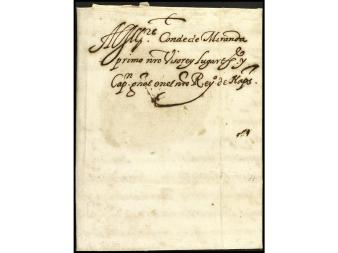 Al Ill.re Conde de Miranda
primo nro Visorey Lugart.te y
Cap.n gñal en el nro Rey.o de Nap.s